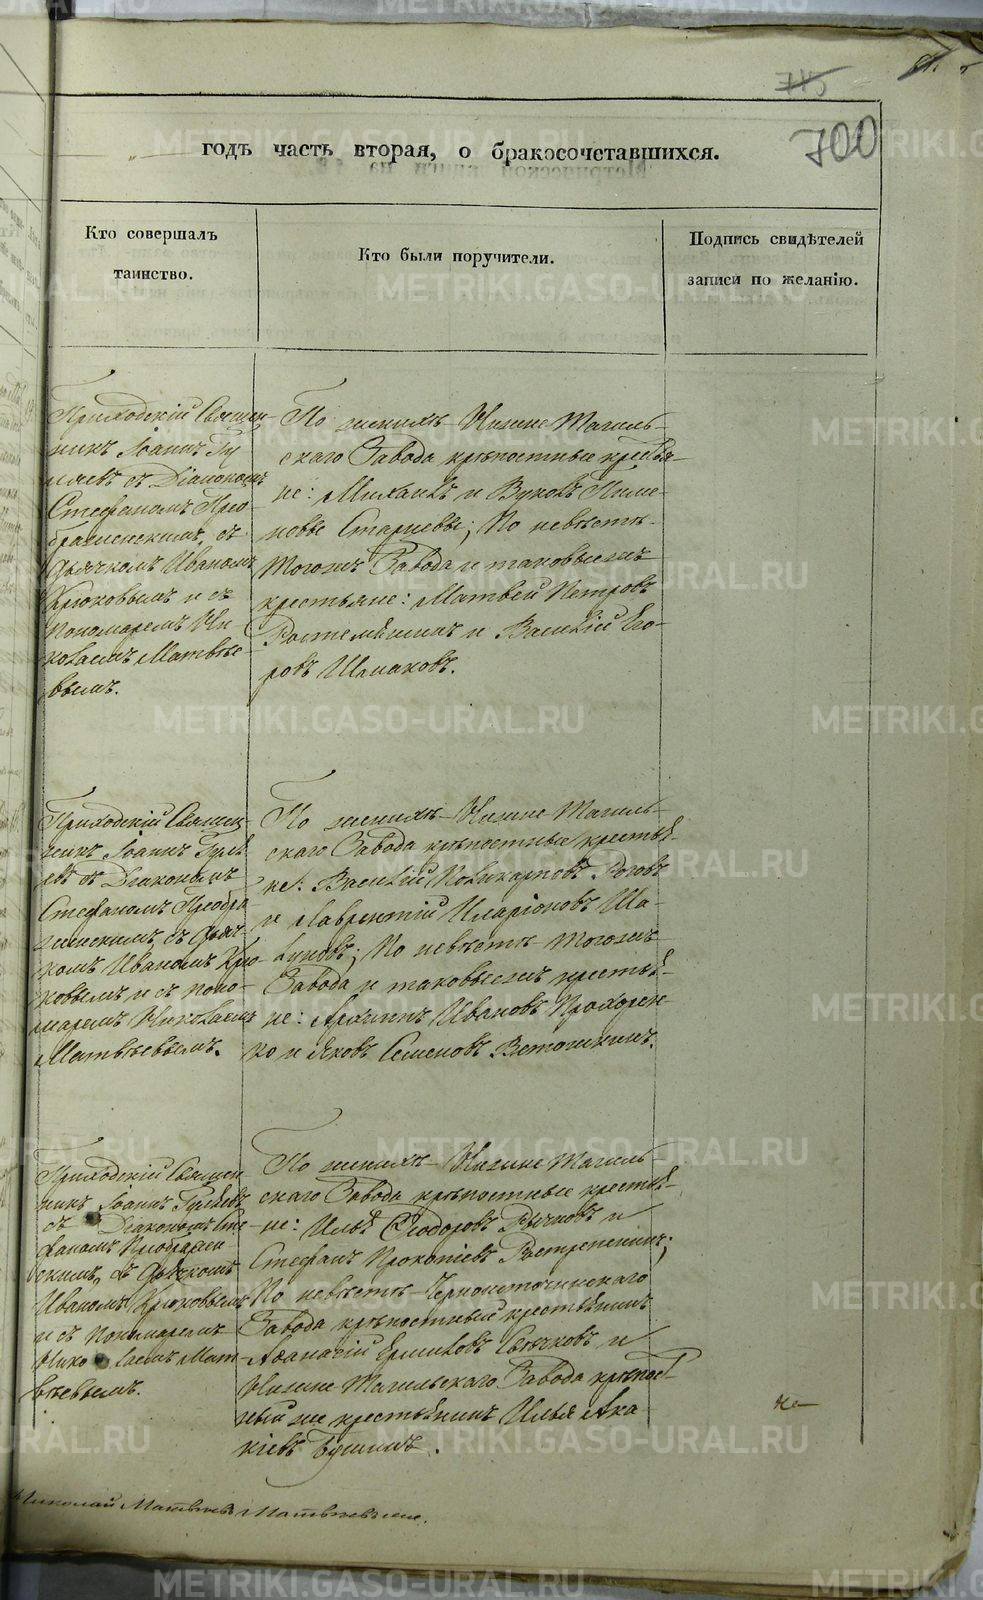 745
700
годъ часть вторая, о бракосочетавшихся.
Кто совершалъ
таинство.
Кто были поручители.
Подпись свидѣтелей
записи по желанію.
Приходскій Священ-
никъ Іоаннъ Гу
ляевъ съ Діакономъ
Стефаномъ Прео-
браженскимъ, съ
Дьячкомъ Иваномъ
Крюковымъ и съ
Пономаремъ Ни
колаемъ Матвѣе-
вымъ.
По женихѣ Нижне Тагиль-
скаго Завода крѣпостные крестья-
не: Михаилъ и Вуколъ Пиме-
новы Старцевы; По невѣстѣ
тогожъ Завода и таковыежъ
крестьяне: Матвей Петровъ
и Василій Его-
ровъ Шмаковъ.
Приходскій Священ-
никъ Іоаннъ Гуля-
евъ съ Діакономъ
Стефаномъ Преобра
женскимъ, съ Дьяч-
комъ Иваномъ Крю-
ковымъ и съ поно-
маремъ Николаемъ
Матвѣевымъ.
По женихѣ Нижне Тагиль-
скаго Завода крѣпостные крестья-
не: Василій Поликарповъ Роговъ
и Лаврентій Иларіоновъ Ша-
луновъ; По невѣстѣ тогожъ
Завода и таковыежъ крестья-
не: Архипъ Ивановъ Прохорен-
ко и Яковъ Семеновъ Ветошкинъ.
Приходскій Священ
никъ Іоаннъ Гуляевъ
съ Діакономъ Сте-
фаномъ Преображен-
скимъ, съ Дьячкомъ
Иваномъ Крюковымъ
и съ Пономаремъ
Николаемъ Мат-
вѣевымъ.
По женихѣ Нижне Тагиль-
скаго Завода крѣпостные крестья-
не: Илья Ѳеодоровъ Рычковъ и
Стефанъ Прокопіевъ Востре­пенинъ;
По невѣстѣ Черноисточинскаго
Завода крѣпостный крестьянинъ
Аѳанасій Ермиловъ и
Нижне Тагильскаго Завода крѣпост-
ный же крестьянинъ Илья Ака
кіевъ
Николай Матвѣевъ Матвѣевъ
METRIKI.GASO-URAL.RU